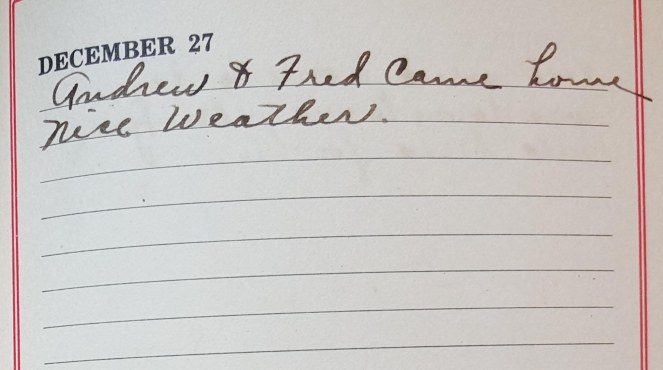 DECEMBER 27
Andrew & Fred Came home
Nice Weather.